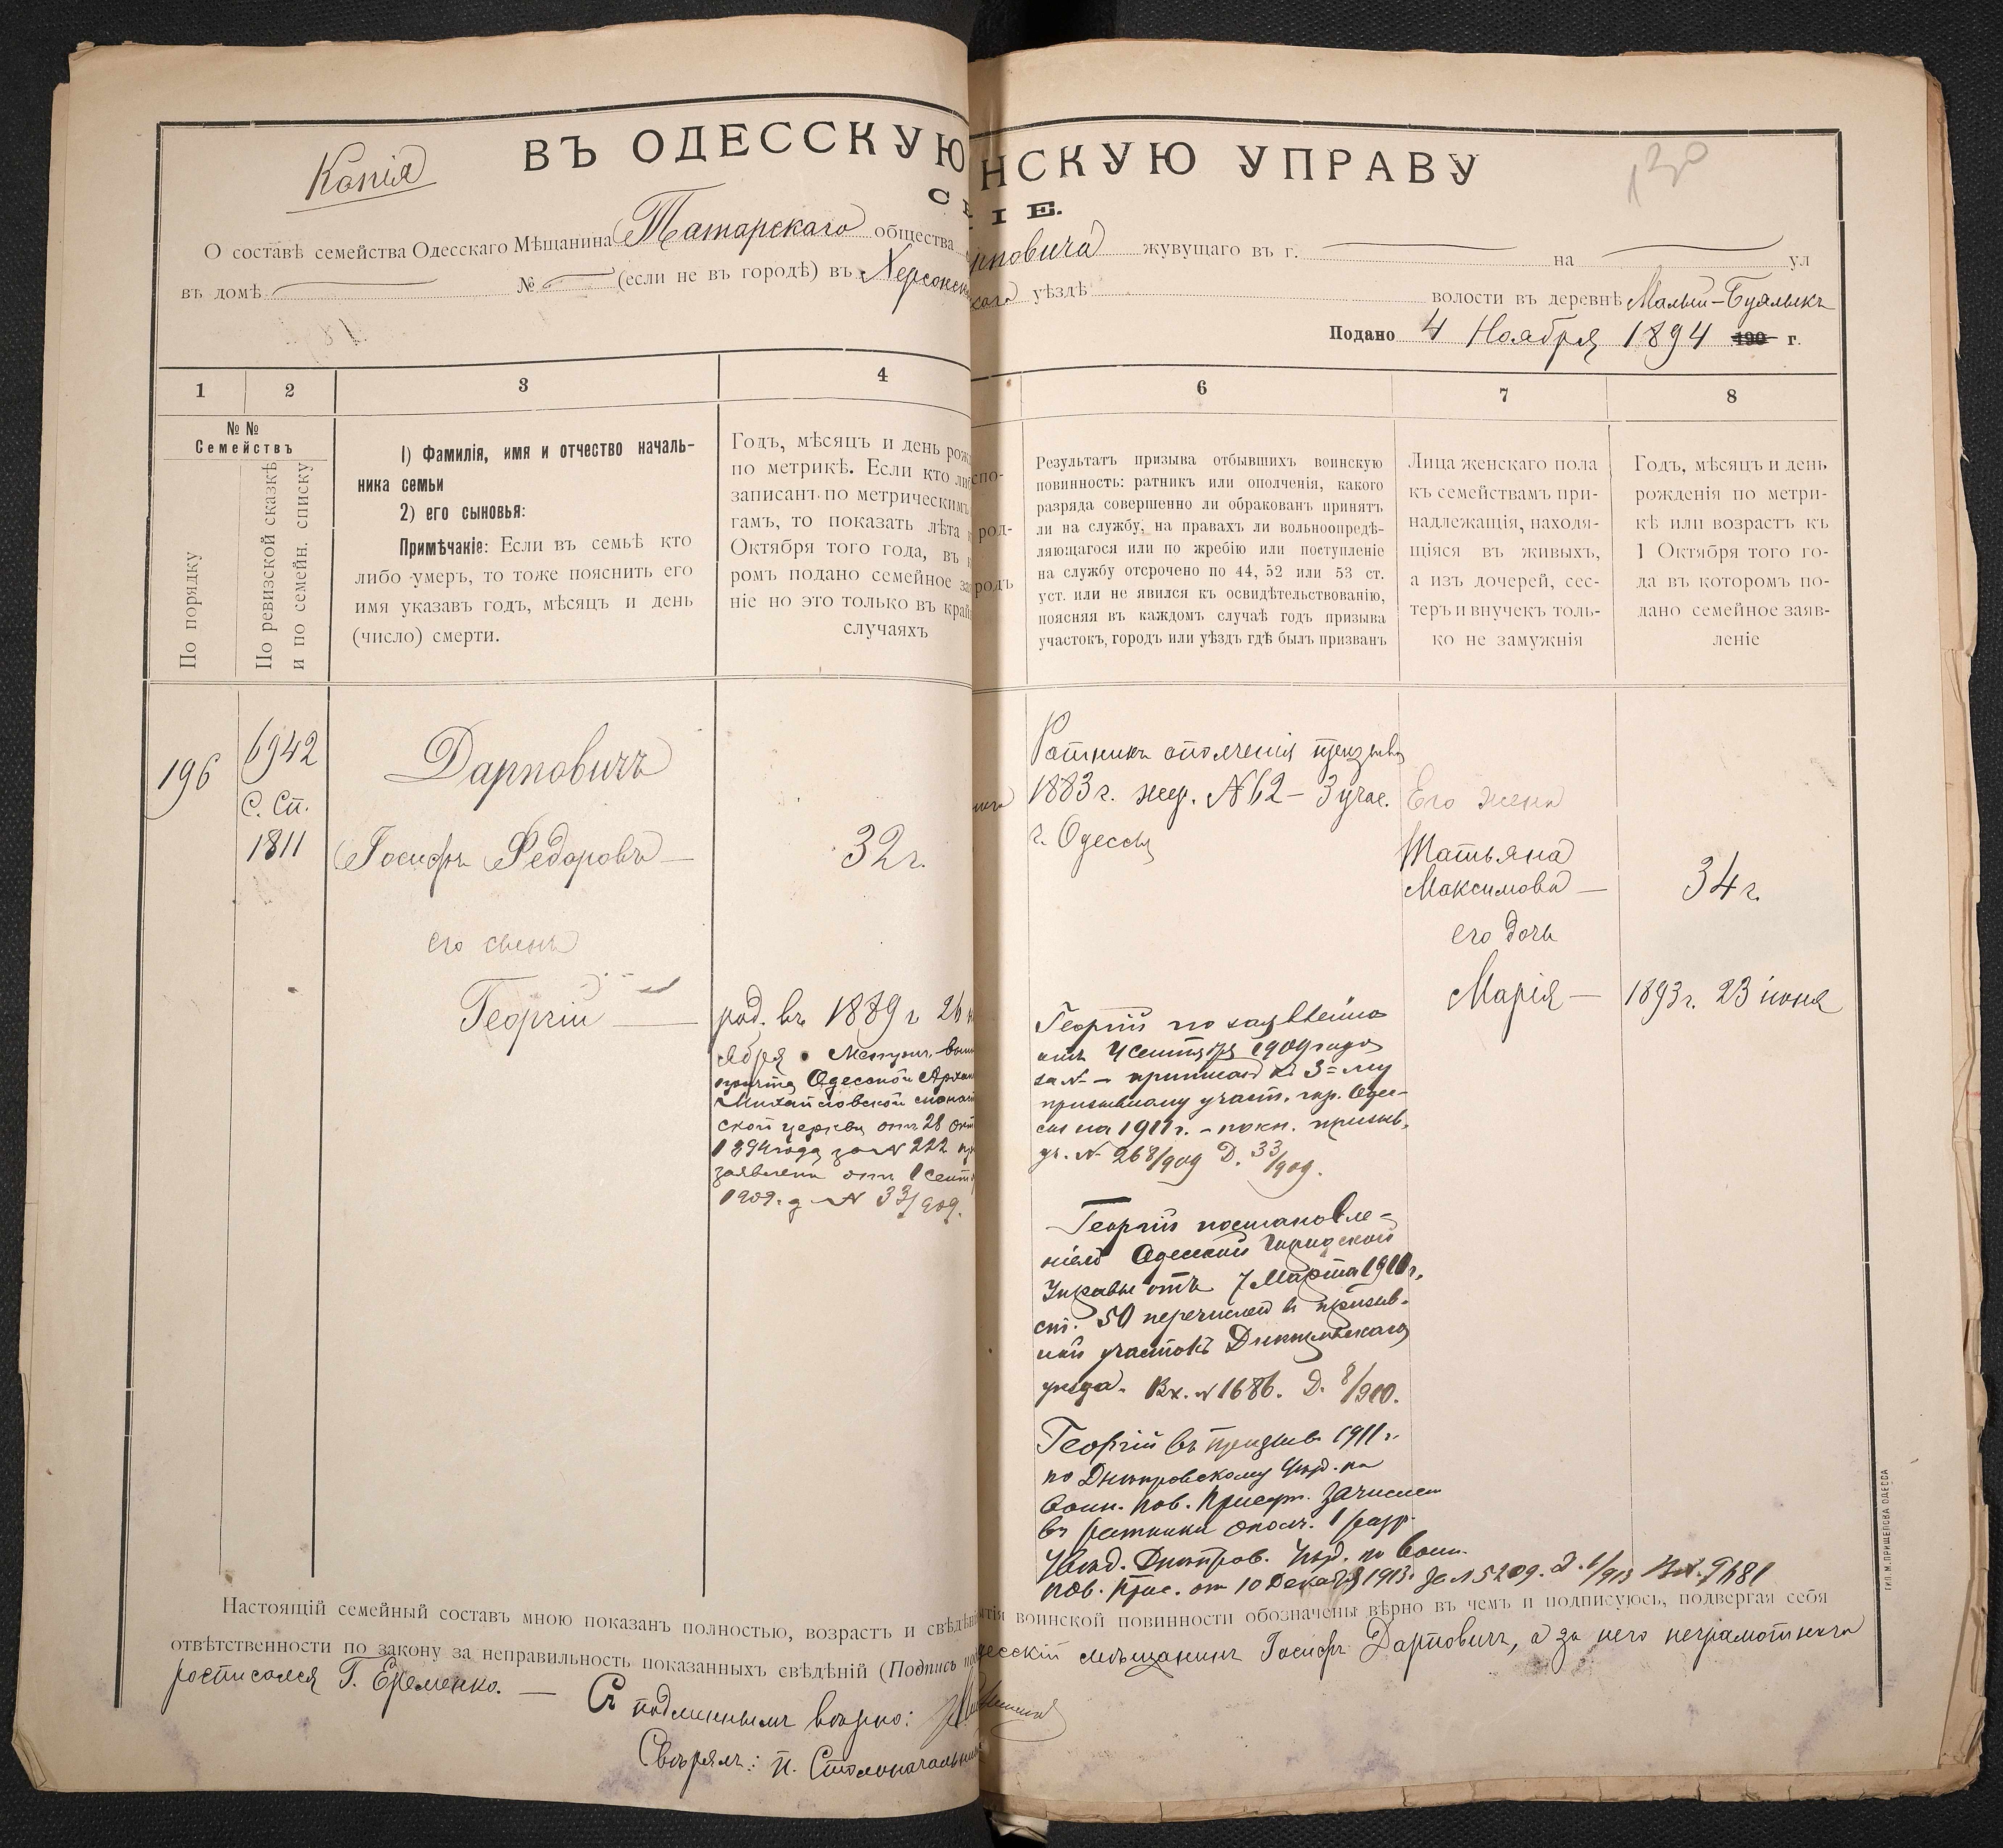 Копія
130
ВЪ ОДЕССКУЮ НСКУЮ УПРАВУ
ІЕ.
О составѣ семейства Одесскаго Мѣщанина Татарскаго общества рповича жувущаго въ г. на ул
въ домѣ № (если не въ городѣ) въ Херсонск скаго уѣздѣ волости въ деревнѣ Малый-Буялыкъ
Подано 4 Ноября 1894 190 г.
1 2 3 4
№ №
Семействъ
По порядку
По ревизской сказкѣ
и по семейн. списку
1) Фамилія, имя и отчество началь-
ника семьи
2) его сыновья:
Примѣчаніе: Если въ семьѣ кто
либо умеръ, то тоже пояснить его
имя указавъ годъ, мѣсяцъ и день
(число) смерти.
Годъ, мѣсяцъ и день рож
по метрикѣ. Если кто ли
записанъ по метрическимъ
гамъ, то показать лѣта к
Октября того года, въ к
ромъ подано семейное за
ніе но это только въ край
случаяхъ
196
6942
С. Сп.
1811
Дарповичъ
Іосифъ Федоровъ —
32 г.
его сынъ
Георгій —
род. въ 1889 г 26 н
ября Метрич. вып
причта Одесской Архан
Михайловской монаст
ской церкви отъ 28 окт
1894 года за № 222 пр
заявленіи отъ 1 сент
1909. д № 33/909.
6 7 8
спо-
род-
родъ
Результатъ призыва отбывшихъ воинскую
повинность: ратникъ или ополченія, какого
разряда совершенно ли обракованъ принятъ
ли на службу, на правахъ ли вольноопредѣ-
ляющагося или по жребію или поступленіе
на службу отсрочено по 44, 52 или 53 ст.
уст. или не явился къ освидѣтельствованію,
поясняя въ каждомъ случаѣ годъ призыва
участокъ, городъ или уѣздъ гдѣ былъ призванъ
Лица женскаго пола
къ семействамъ при-
надлежащія, находя-
щіяся въ живыхъ,
а изъ дочерей, сес-
теръ и внучекъ толь-
ко не замужнія
Годъ, мѣсяцъ и день
рожденія по метри-
кѣ или возрастъ къ
1 Октября того го-
да въ которомъ по-
дано семейное заяв-
леніе
Ратникъ ополченія призыва
1883 г. жер. № 62 – 3 учас.
г. Одессы
Его жена
Татьяна
Максимова —
34 г.
его дочь
Марія —
1893 г. 23 іюня
Георгій по заявленію
отъ 4 сентября 1909 года
за № – приписанъ къ 3=му
призывному участ. гор. Одес-
сы на 1911 г. – по кн. призыв.
уч. № 268/909 Д. 33/909.
Георгій постановле-
ніемъ Одесской Городской
Управы отъ 7 Марта 1910 г.
ст. 50 перечисленъ въ призыв-
ной участокъ Днѣпровскаго
уѣзда. Вх. № 1686. Д. 8/910.
Георгій въ призывъ 1911 г.
по Днѣпровскому Уѣзд. по
воин. пов. Присут. зачисленъ
въ ратники ополч. 1 разр.
Увѣд. Днѣпров. Уѣзд. по воин.
пов. Прис. от 10 Декабря 1913 г за № 5209. Д. 1/913 Вх. 9681
Настоящій семейный составъ мною показанъ полностью, возрастъ и свѣдѣн тія воинской повинности обозначены вѣрно въ чемъ и подписуюсь, подвергая себя
отвѣтственности по закону за неправильность показанныхъ свѣдѣній (Подпись по десскій мѣщанинъ Іосифъ Дарповичъ, а за него неграмотнаго
росписался Г. Еременко. —
Съ подлиннымъ вѣрно:
Свѣрялъ: п. Столоначальник
ТИП. М. ПРИЩЕПОВА ОДЕССА